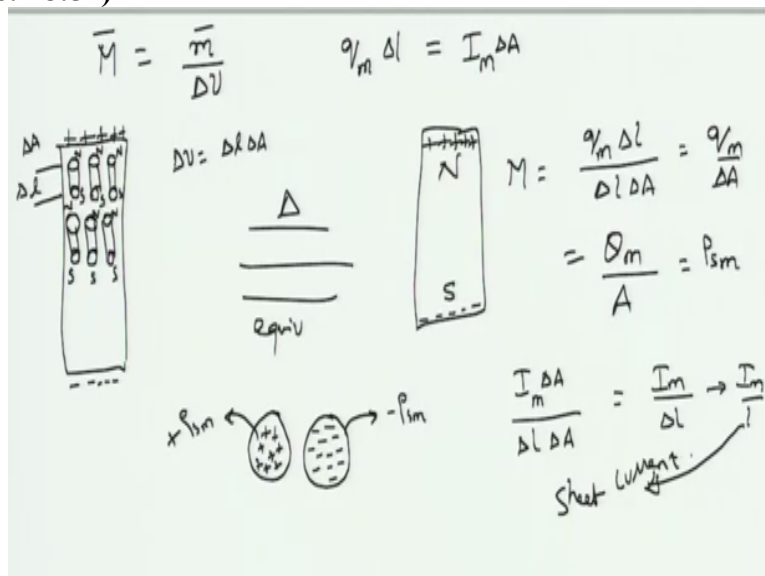 M̄ = m̄ / ΔV
q_m Δl = I_m ΔA
ΔA
Δl
+ + + +
N N N
S S S
N N N
S S S
- - - -
ΔV = Δl ΔA
Δ
equiv
+ + + +
N
S
- - - -
M = q_m Δl / Δl ΔA = q_m / ΔA
= Q_m / A = ρ_sm
+ρ_sm
-ρ_sm
I_m ΔA / Δl ΔA = I_m / Δl → I_m / l
Sheet current.